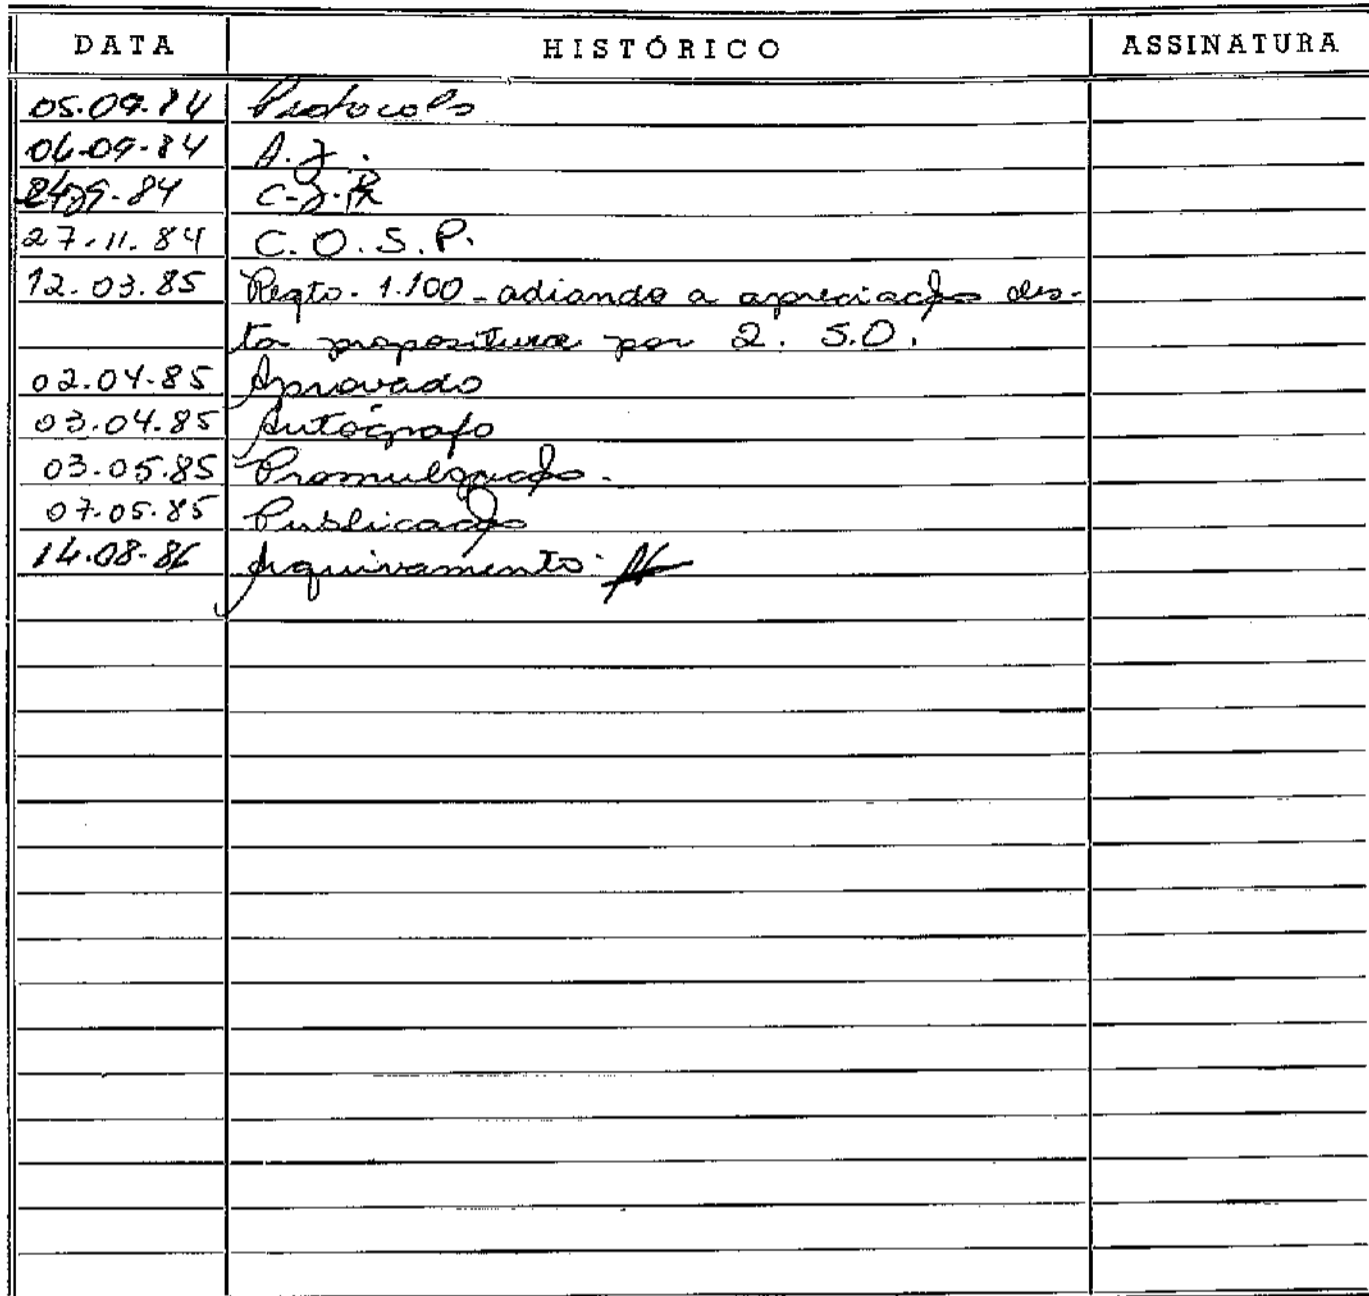 DATA HISTÓRICO ASSINATURA
05.09.84 Protocolo
06.09.84 A.J.
09.84 C.J.R
27.11.84 C.O.S.P.
12.03.85 Reqto. 1.100 - adiando a apreciação des-
ta propositura por 2. S.O.
02.04.85 Aprovado
03.04.85 Autógrafo
03.05.85 Promulgação.
07.05.85 Publicação
14.08.86 Arquivamento